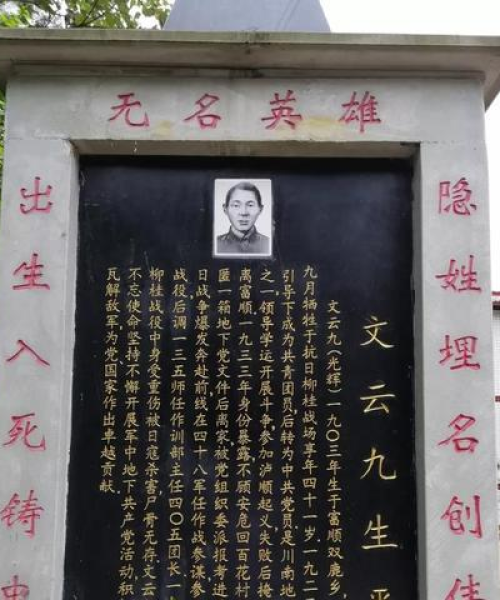 无名英雄
隐姓埋名创伟
出生入死铸忠
文云九生平
文云九(光辉)一九0三年生于富顺双鹿乡,
九月牺牲于抗日柳桂战场享年四十一岁.一九二
引导下成为共青团员,后转为中共党员,是川南地
之一,领导学运开展斗争,参加泸顺起义失败后掩
离富顺一九三三年身份暴露,不顾安危回百花村
匿一箱地下党文件后离家,被党组织委派报考进
日战争爆发奔赴前线在四十八军任作战参谋参
战役后调一三五师任作训部主任四0五团长一
柳桂战役中身受重伤被日寇杀害尸骨无存.文云
不忘使命坚持不懈开展军中地下共产党活动,积
瓦解敌军为党国家作出卓越贡献.